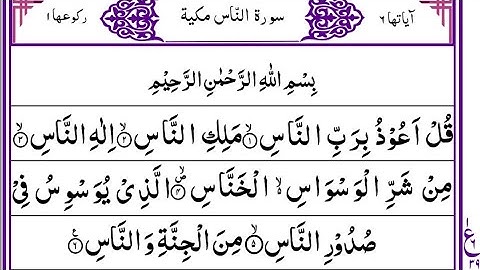 آياتها ٦ سورة النّاس مكية ركوعها ١
بِسْمِ اللهِ الرَّحْمٰنِ الرَّحِيْمِ
قُلْ اَعُوْذُ بِرَبِّ النَّاسِ ۙ﴿۱﴾ مَلِكِ النَّاسِ ۙ﴿۲﴾ اِلٰهِ النَّاسِ ۙ﴿۳﴾
مِنْ شَرِّ الْوَسْوَاسِ ۙ۬ الْخَنَّاسِ ۪ۙ﴿۴﴾ الَّذِیْ یُوَسْوِسُ فِیْ
صُدُوْرِ النَّاسِ ۙ﴿۵﴾ مِنَ الْجِنَّةِ وَ النَّاسِ ﴿۶﴾
ع
١
٦
٣٩